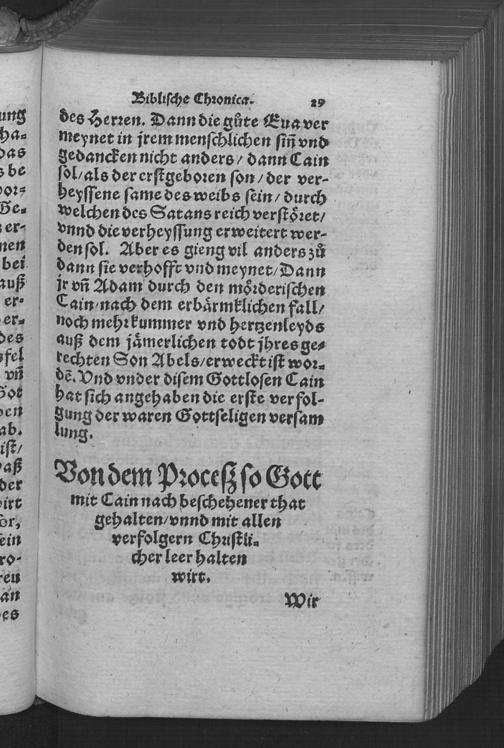 Biblische Chronica. 29
des Herren. Dann die gůte Eua ver
meynet in jrem menschlichen siñ vnd
gedancken nicht anders/ dann Cain
sol/ als der erstgeboren son/ der ver-
heyssene same des weibs sein/ durch
welchen des Satans reich verstöret/
vnnd die verheyssung erweitert wer-
den sol. Aber es gieng vil anders zů
dann sie verhofft vnd meynet/ Dann
jr vñ Adam durch den mörderischen
Cain/ nach dem erbärmklichen fall/
noch mehr kummer vnd hertzenleyds
auß dem jämerlichen todt jhres ge-
rechten Son Abels/ erweckt ist wor-
dẽ. Vnd vnder disem Gottlosen Cain
hat sich angehaben die erste verfol-
gung der waren Gottseligen versam
lung.
Von dem Procesz so Gott
mit Cain nach beschehener that
gehalten/ vnnd mit allen
verfolgern Christli-
cher leer halten
wirt.
Wir
ung
ha-
das
s be
vor-
Ge-
er-
nen
bei
auß
er-
er-
des
sfel
vñ
Got
ben
ab.
ist/
aß
der
virt
or,
ein
ro-
ren
an
es